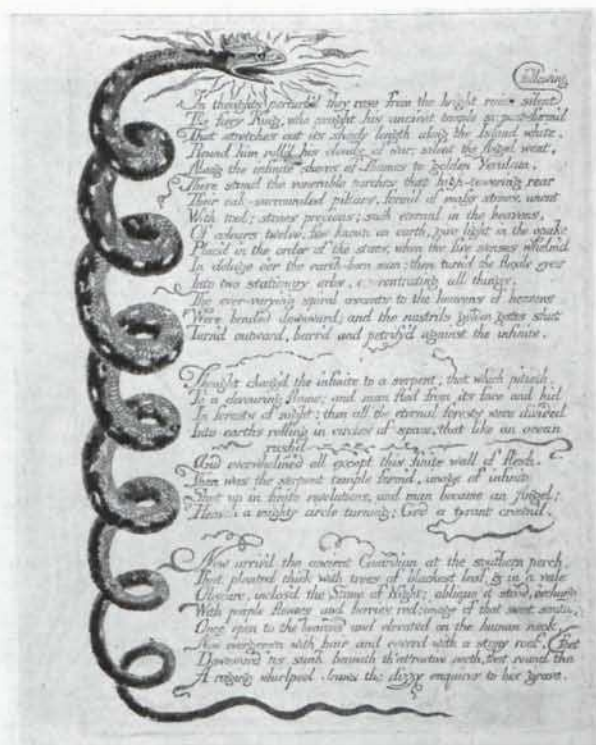 following
In thoughts perturb'd they rose from the bright ruins silent
The fiery King, who sought his ancient temple serpent-form'd
That stretches out its shady length along the Island white.
Round him roll'd his clouds of war; silent the Angel went,
Along the infinite shores of Thames to golden Verulam.
There stand the venerable porches that high-towering rear
Their oak-surrounded pillars, form'd of massy stones, uncut
With tool; stones precious; such eternal in the heavens,
Of colours twelve, few known on earth, give light in the opake
Plac'd in the order of the stars, when the five senses whelm'd
In deluge o'er the earth-born man; then turn'd the fluxile eyes
Into two stationary orbs, concentrating all things.
The ever-varying spiral ascents to the heavens of heavens
Were bended downward; and the nostrils golden gates shut
Turn'd outward, barr'd and petrify'd against the infinite.
Thought chang'd the infinite to a serpent; that which pitieth:
To a devouring flame; and man fled from its face and hid
In forests of night; then all the eternal forests were divided
Into earths rolling in circles of space, that like an ocean
rush'd
And overwhelmed all except this finite wall of flesh.
Then was the serpent temple form'd, image of infinite
Shut up in finite revolutions, and man became an Angel;
Heaven a mighty circle turning; God a tyrant crown'd.
Now arriv'd the ancient Guardian at the southern porch,
That planted thick with trees of blackest leaf, & in a vale
Obscure, inclos'd the Stone of Night; oblique it stood, o'erhung
With purple flowers and berries red; image of that sweet south,
Once open to the heavens and elevated on the human neck,
Now overgrown with hair and coverd with a stony roof,
Downward 'tis sunk beneath th' attractive north, that round the feet
A raging whirlpool draws the dizzy enquirer to his grave.